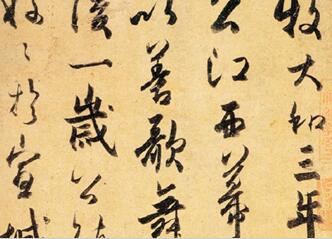 牧大和三年
公江西幕
以善歌舞
後一歲公
好〻於宣城